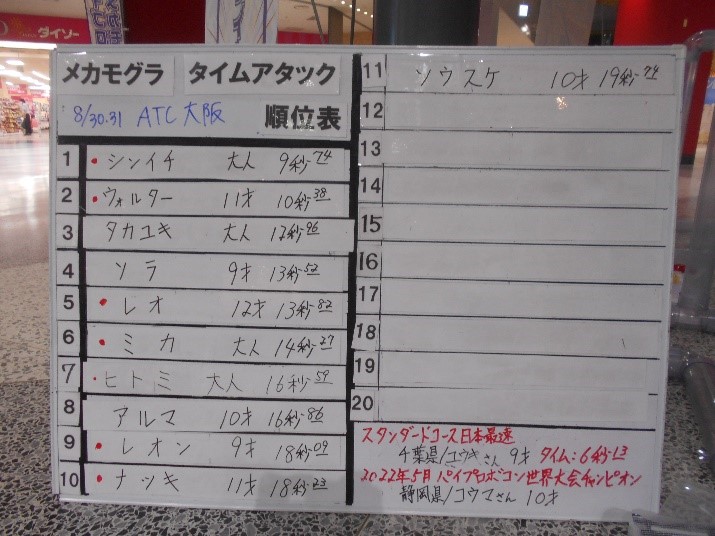 ダイソー
メカモグラ タイムアタック
8/30.31 ATC大阪 順位表
1 シンイチ 大人 9秒74
2 ウォルター 11才 10秒38
3 タカユキ 大人 12秒96
4 ソラ 9才 13秒52
5 レオ 12才 13秒82
6 ミカ 大人 14秒27
7 ヒトミ 大人 16秒59
8 アルマ 10才 16秒86
9 レオン 9才 18秒09
10 ナツキ 11才 18秒23
11 ソウスケ 10才 19秒74
12
13
14
15
16
17
18
19
20
スタンダードコース日本最速
千葉県/ユウキさん 9才 タイム:6秒13
2022年5月 パイプロボコン世界大会チャンピオン
静岡県/コウマさん 10才